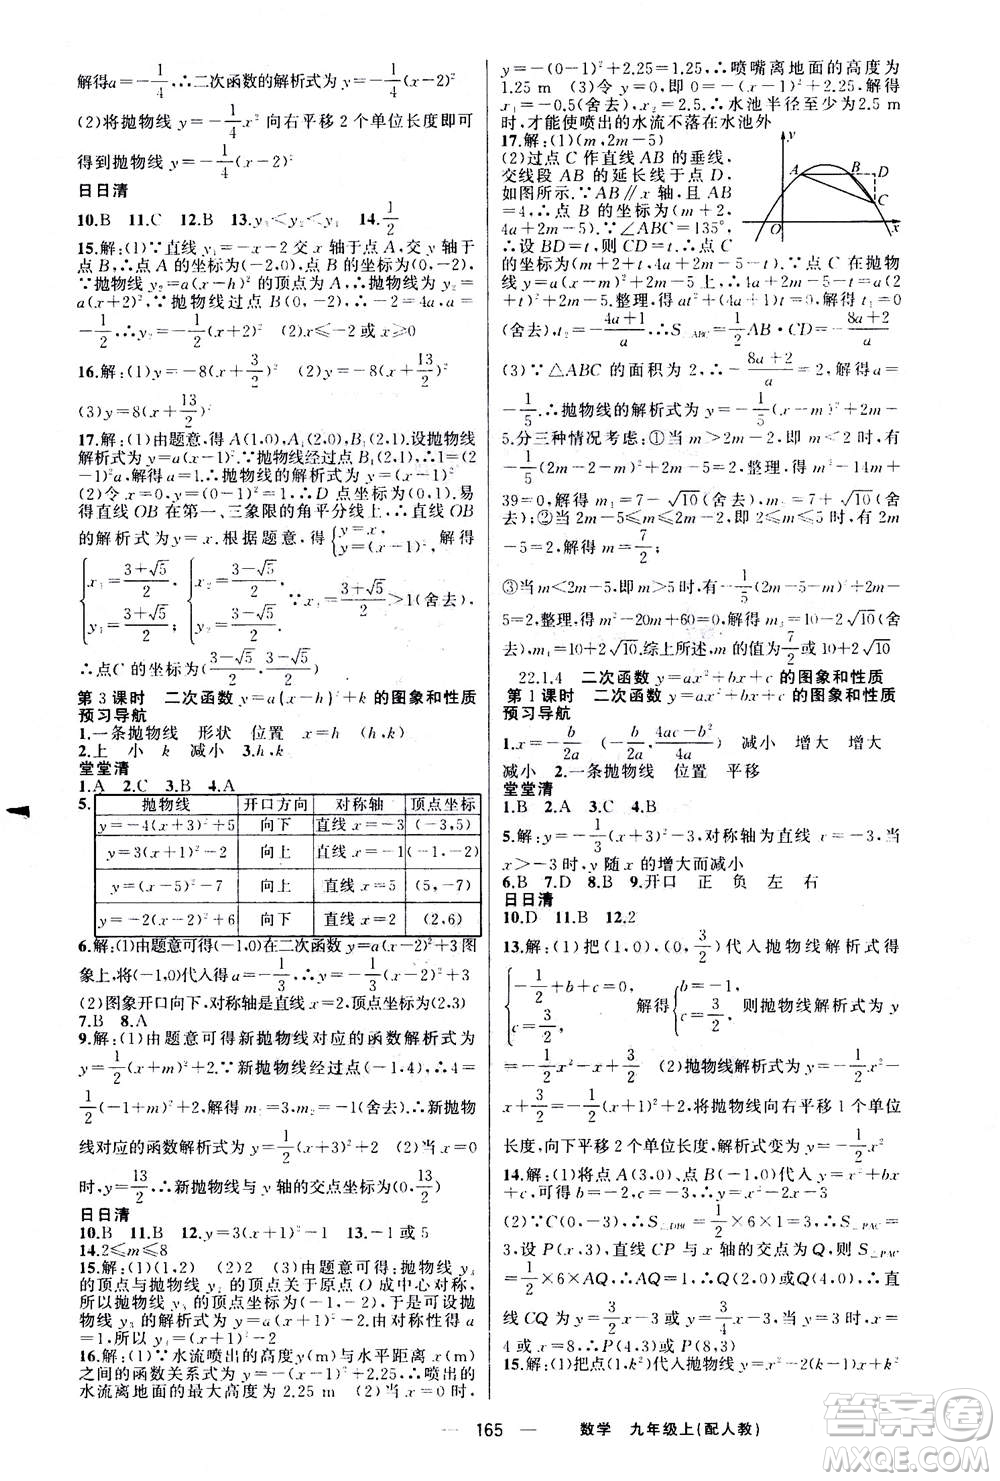 解得a=-1/4,∴二次函数的解析式为 y=-1/4(x-2)²
(2)将抛物线 y=-1/4x² 向右平移 2 个单位长度即可
得到抛物线 y=-1/4(x-2)²
日日清
10.B 11.C 12.B 13.y₃<y₂<y₁ 14.1/2
15.解:(1)∵直线 y₁=-x-2 交 x 轴于点 A,交 y 轴于
点 B,∴点 A 的坐标为(-2,0),点 B 的坐标为(0,-2).
∵抛物线 y₂=a(x-h)² 的顶点为 A,∴抛物线为 y₂=
a(x+2)².∵抛物线过点 B(0,-2),∴-2=4a,a=
-1/2,∴y₂=-1/2(x+2)² (2)x≤-2 或 x≥0
16.解:(1)y=-8(x+1/2)² (2)y=-8(x+13/2)²
(3)y=8(x+13/2)²
17.解:(1)由题意,得 A(1,0),A₁(2,0),B₁(2,1).设抛物线
解析式为 y=a(x-1)².∵抛物线经过点 B₁(2,1),∴1=a(2-
1)²,解得 a=1.∴抛物线的解析式为 y=(x-1)²
(2)令 x=0,则 y=(0-1)²=1,∴D 点坐标为(0,1).易
得直线 OB 在第一、三象限的角平分线上,∴直线 OB
的解析式为 y=x.根据题意,得{y=x, y=(x-1)², 解得
{x₁=(3+√5)/2, y₁=(3+√5)/2, {x₂=(3-√5)/2, y₂=(3-√5)/2. ∵(3+√5)/2>1(舍去),
∴点C 的坐标为((3-√5)/2,(3-√5)/2)
第 3 课时 二次函数 y=a(x-h)²+k 的图象和性质
预习导航
1.一条抛物线 形状 位置 x=h (h,k)
2.上 小 k 减小 3.h,k
堂堂清
1.A 2.C 3.B 4.A
5. 抛物线 开口方向 对称轴 顶点坐标
y=-4(x+3)²+5 向下 直线 x=-3 (-3,5)
y=3(x+1)²-2 向上 直线 x=-1 (-1,-2)
y=(x-5)²-7 向上 直线 x=5 (5,-7)
y=-2(x-2)²+6 向下 直线 x=2 (2,6)
6.解:(1)由题意可得(-1,0)在二次函数 y=a(x-2)²+3 图
象上,将(-1,0)代入得 a=-1/3,∴y=-1/3(x-2)²+3
(2)图象开口向下,对称轴是直线 x=2,顶点坐标为(2,3)
7.B 8.A
9.解:(1)由题意可得新抛物线对应的函数解析式为
y=1/2(x+m)²+2.∵新抛物线经过点(-1,4),∴4=
1/2(-1+m)²+2,解得 m₁=3,m₂=-1(舍去),∴新抛物
线对应的函数解析式为 y=1/2(x+3)²+2 (2)当 x=0
时,y=13/2,∴新抛物线与 y 轴的交点坐标为(0,13/2)
日日清
10.B 11.B 12.y=3(x+1)²-1 13.-1 或 5
14.2≤m≤8
15.解:(1)(1,2) (2)2 (3)由题意可得:抛物线 y₃
的顶点与抛物线 y₂ 的顶点关于原点 O 成中心对称,
所以抛物线 y₃ 的顶点坐标为(-1,-2),于是可设抛物
线 y₃ 的解析式为 y=a(x+1)²-2.由对称性得
a=1,所以 y₃=(x+1)²-2
16.解:(1)∵水流喷出的高度 y(m)与水平距离 x(m)
之间的函数关系式为 y=-(x-1)²+2.25,∴喷出的
水流离地面的最大高度为 2.25 m (2)当 x=0 时,
y=-(0-1)²+2.25=1.25,∴喷嘴离地面的高度为
1.25 m (3)令 y=0 即 0=-(x-1)²+2.25,解得
x₁=-0.5(舍去),x₂=2.5,∴水池半径至少为 2.5 m
时,才能使喷出的水流不落在水池外
17.解:(1)(m,2m-5)
(2)过点 C 作直线 AB 的垂线,
交线段 AB 的延长线于点 D,
如图所示.∵AB∥x 轴,且 AB
=4,∴点 B 的坐标为(m+2,
4a+2m-5).∵∠ABC=135°,
∴设 BD=t,则 CD=t,
y A B D C O x
∴点 C 的坐标为(m+2+t,4a+2m-5-t).∵点 C 在抛物
线 y=a(x-m)²+2m-5 上,∴4a+2m-5-t=a(2
+t)²+2m-5.整理,得 at²+(4a+1)t=0 解得 t₁=0
(舍去),t₂=-(4a+1)/a.∴S△ABC=1/2AB·CD=-(8a+2)/a
(3)∵△ABC 的面积为 2,∴-(8a+2)/a=2,解得a=
-1/5,∴抛物线的解析式为 y=-1/5(x-m)²+2m-
5.分三种情况考虑:①当 m>2m-2,即 m<2
39=0,解得 m₁=7-√10(舍去),m₂=7+√10(舍
去);②当 2m-5≤m≤2m-2,即 2≤m≤5 时,有2m
-5=2,解得 m=7/2
③当 m<2m-5,即 m>5 时,有-1/5(2m-5-m)²+2m
-5=2,整理,得 m²-20m+60=0,解得 m₃=10-2√10(舍
去),m₄=10+2√10.综上所述,m 的值为 7/2 或 10+2√10
22.1.4 二次函数 y=ax²+bx+c 的图象和性质
第 1 课时 二次函数 y=ax²+bx+c 的图象和性质
预习导航
1.x=-b/2a (-b/2a,(4ac-b²)/4a) 减小 增大 增大
减小 2.一条抛物线 位置 平移
堂堂清
1.B 2.D 3.C 4.B
5.解:y=-1/3(x+3)²-3,对称轴为直线 x=-3,当
x>-3 时,y 随 x 的增大而减小
6.B 7.D 8.D 9.开口 正 负 左 右
日日清
10.D 11.B 12.2
13.解:(1)把(1,0),(0,3/2)代入抛物线解析式得
{-1/2+b+c=0, c=3/2, 解得{b=-1, c=3/2, 则抛物线解析式为 y
=-1/2x²-x+3/2 (2)抛物线解析式为 y=-1/2x²-
x+3/2=-1/2(x+1)²+2,将抛物线向右平移 1 个单位
长度,向下平移 2 个单位长度,解析式变为 y=-1/2x²
14.解:(1)将点 A(3,0)、点 B(-1,0)代入 y=x²+bx+
(2)∵C(0,-3),∴S△DBC=1/2×6×1=3,∴S△PAC=
3,设 P(x,3),直线 CP 与 x 轴的交点为 Q,则 S△PAC
=1/2×6×AQ,∴1/2×6×AQ=3,∴AQ=1,∴直
4 或 x=0,x=8,∴P(4,3)或 P(8,3)
15.解:(1)把点(1,k²)代入抛物线 y=x²-2(k-1)x+k²
165 数学 九年级上(配人教)
答案圈
MXQE.COM